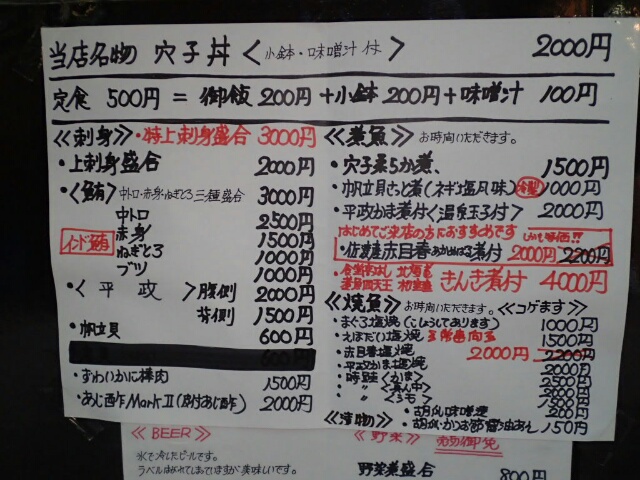 当店名物 穴子丼 〈小鉢・味噌汁付〉 2000円
定食 500円 = 御飯 200円 + 小鉢 200円 + 味噌汁 100円
≪刺身≫・特上刺身盛合 3000円
・上刺身盛合 2000円
・〈鮪〉中トロ・赤身・ねぎとろ三種盛合 3000円
インド鮪
中トロ 2500円
赤身 1500円
ねぎとろ 1000円
ブツ 1000円
・〈平政〉腹側 2000円
背側 1500円
・帆立貝 600円
・ずわいかに棒肉 1500円
・あじ酢 Mark II (皮付あじ酢) 2000円
≪煮魚≫ お時間いただきます。
・穴子柔らか煮、 1500円
・帆立貝さっと煮(ネギ塩風味) 1000円
・平政かま煮付〈温泉玉子付〉 2000円
はじめてご来店の方におすすめです
・佐渡産赤目春(あかめばる)煮付 2000円 2200円
きんき煮付 4000円
≪焼魚≫ お時間いただきます。≪コゲます≫
・まぐろ塩焼(こしょうしてあります) 1000円
・えぼだい塩焼 1500円
・赤目春塩焼 2000円 2200円
・平政かま塩焼 2000円
・時鮭〈かま〉 2500円
・〃〈真ん中〉 2000円
・〃 1500円
≪漬物≫・胡瓜、味噌漬 200円
・胡瓜、かつお節醤油あえ 150円
≪BEER≫
氷で冷したビールです。
ラベルはがれてしまっていますが美味しいです。
≪野菜≫
野菜煮盛合 800円